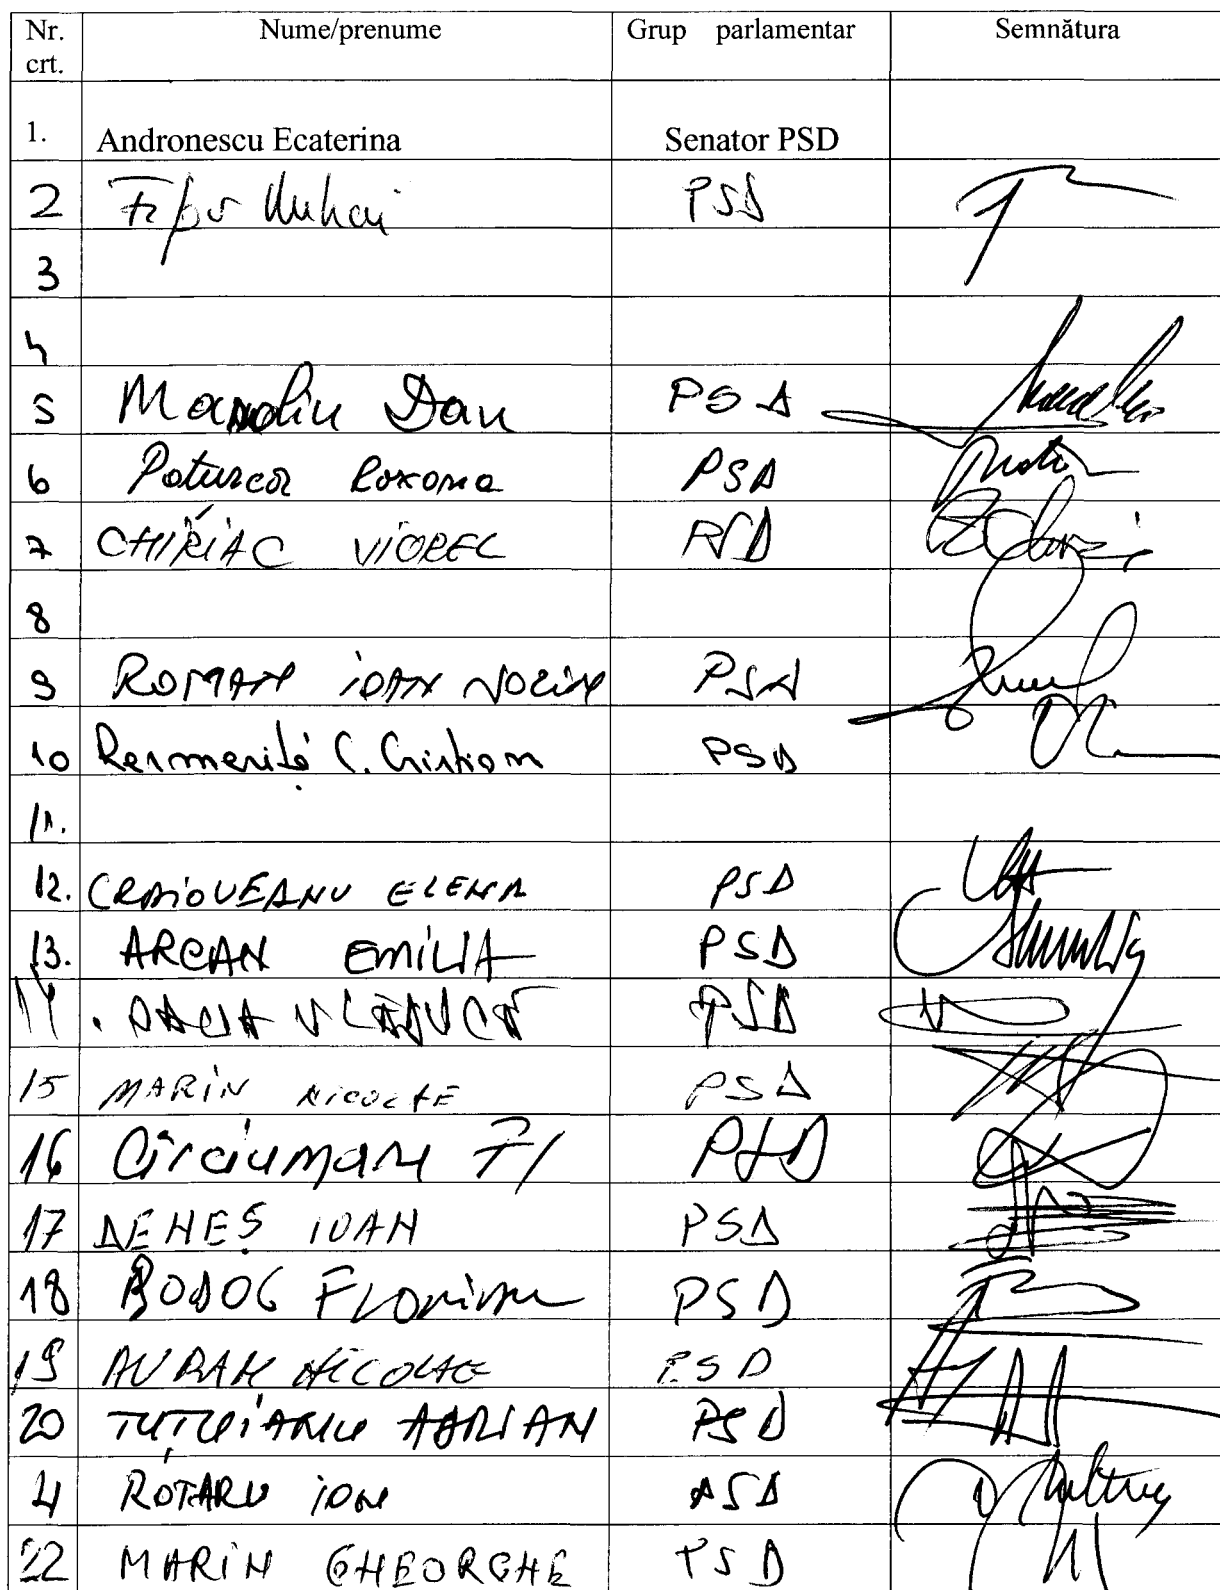 Nr. crt. Nume/prenume Grup parlamentar Semnătura
1. Andronescu Ecaterina Senator PSD
2 Fifor Mihai PSD
3
4
5 Manoliu Dan PSD
6 Paturca Roxana PSD
7 CHIRIAC VIOREL PSD
8
9 ROMAN IOAN SORIN PSD
10 C. Cristian PSD
11.
12. CRAIOVEANU ELENA PSD
13. ARCAN EMILIA PSD
14. PSD
15 MARIN NICOLAE PSD
16 Circiumaru Fl PSD
17 DENEȘ IOAN PSD
18 BODOG Florian PSD
19 AVRAM NICOLAE PSD
20 ȚUȚUIANU ADRIAN PSD
21 ROTARU ION PSD
22 MARIN GHEORGHE PSD